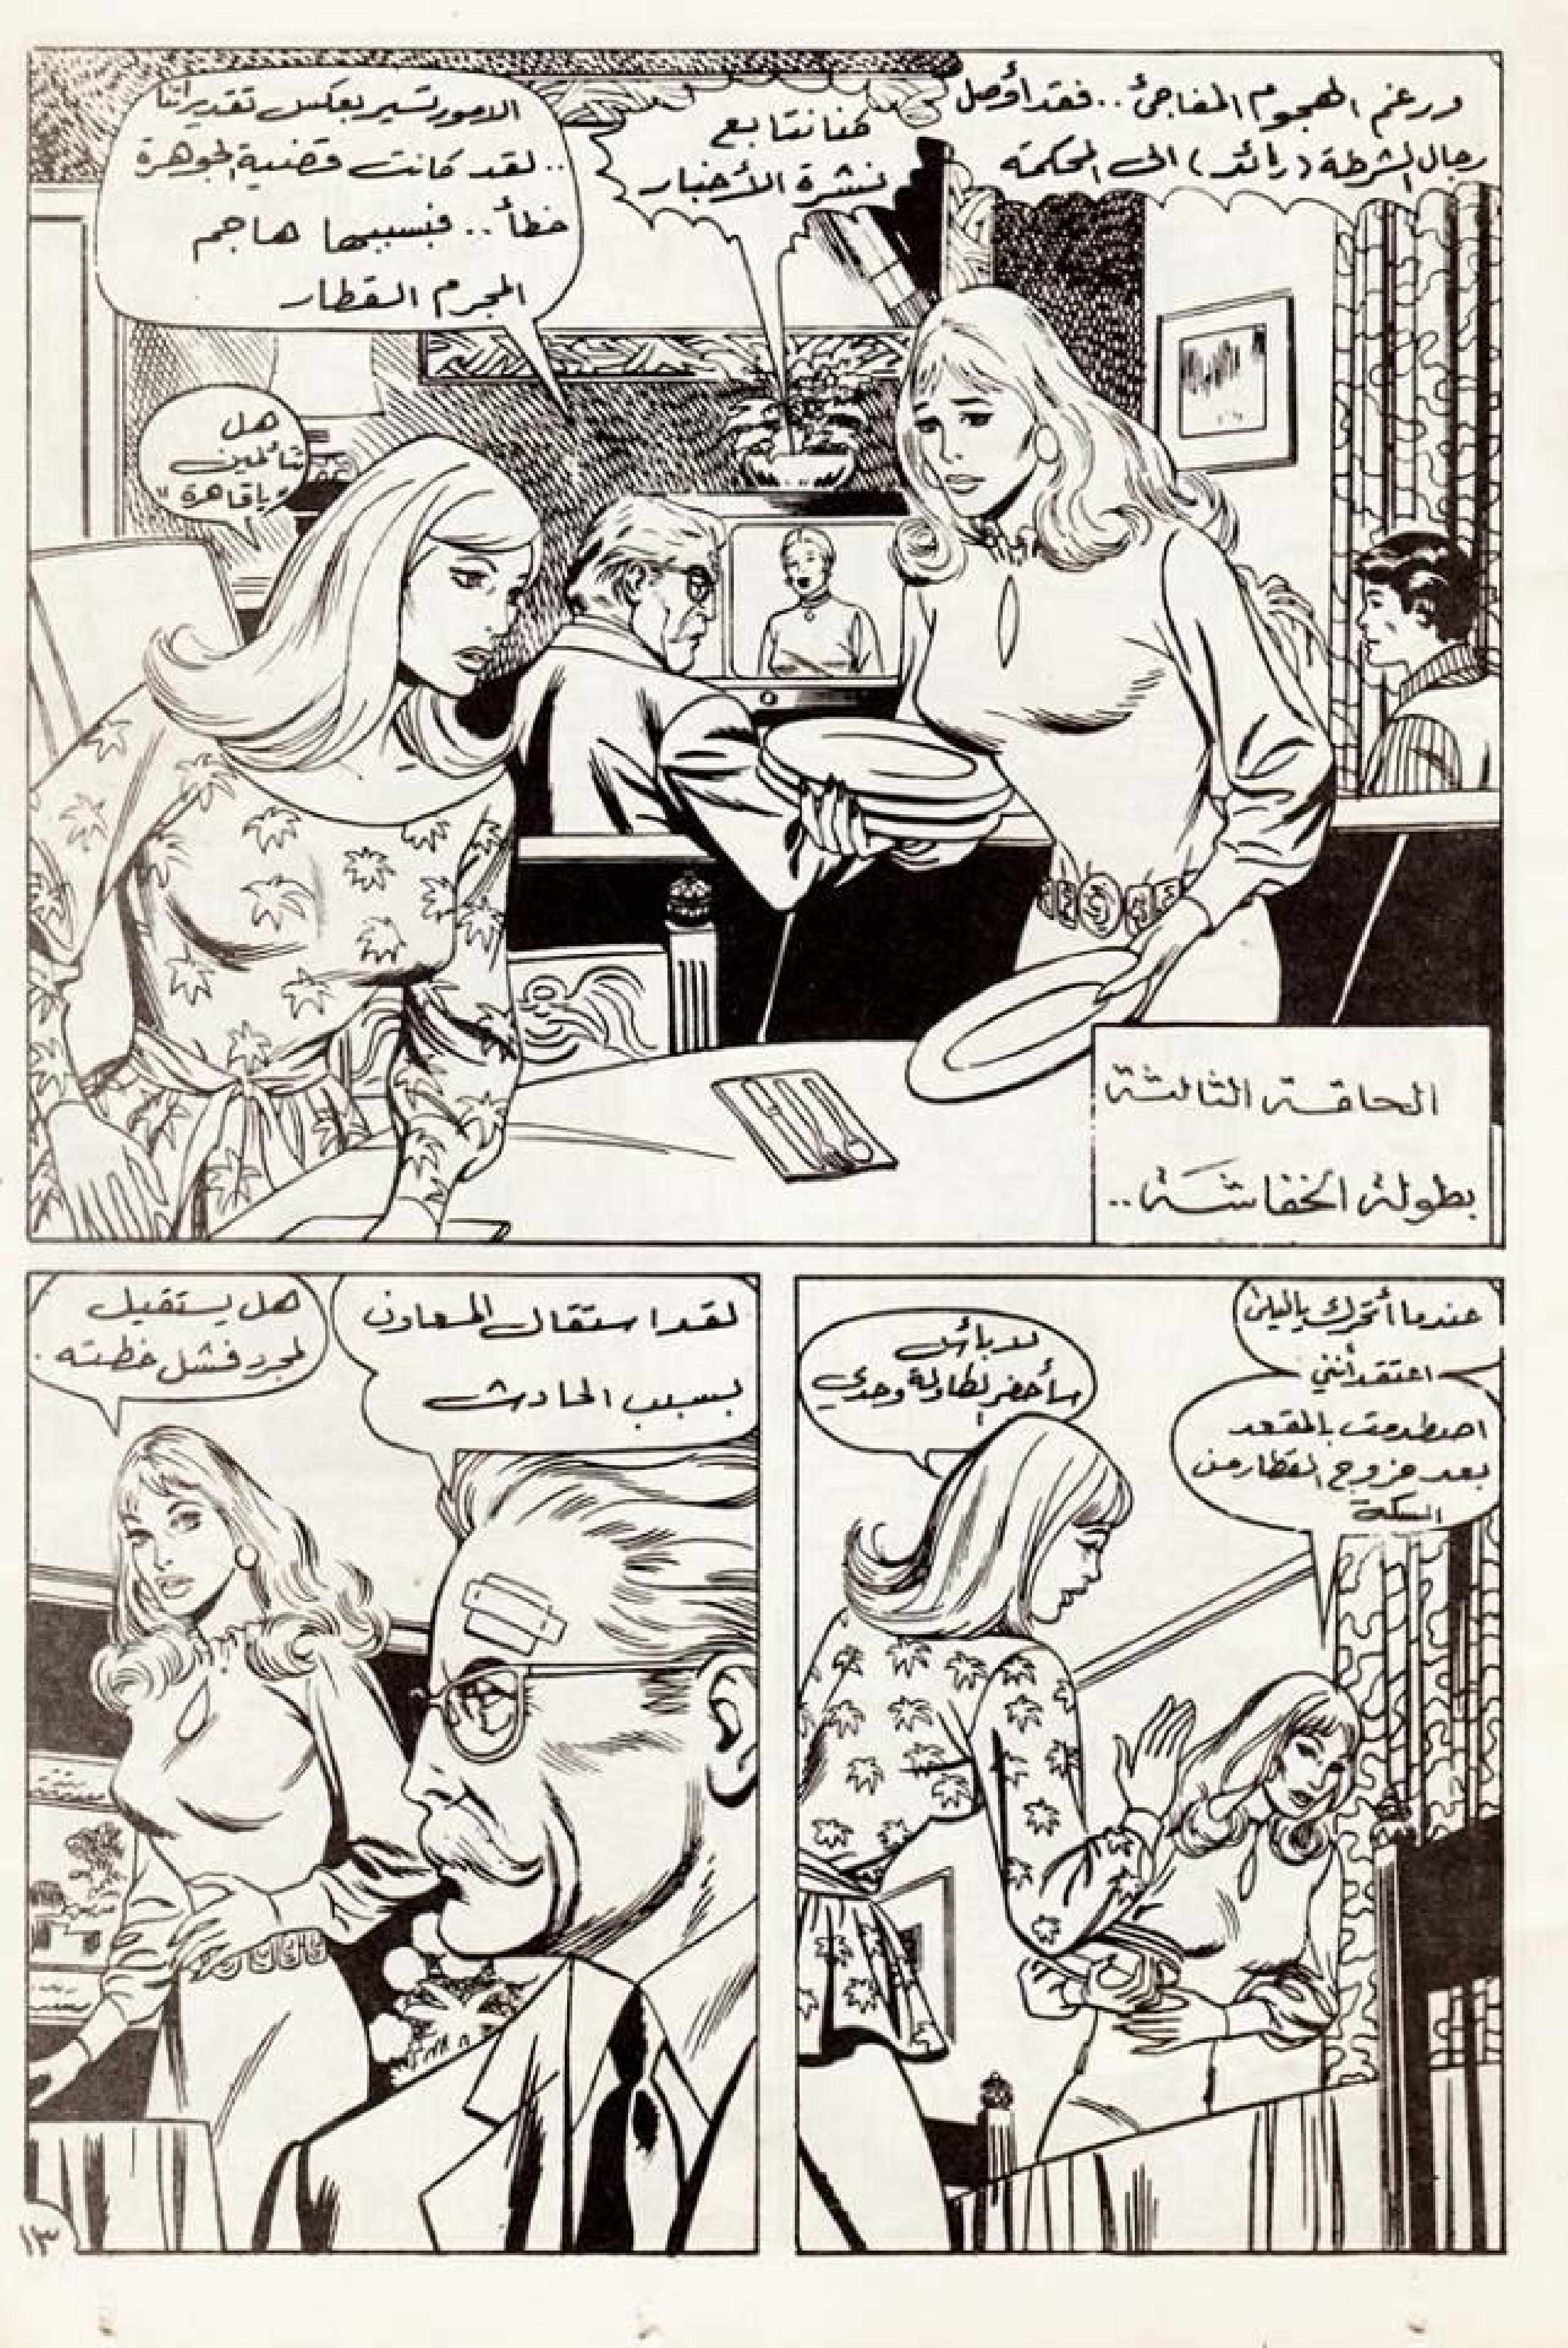 ورغم الهجوم المفاجئ.. فقد أوصل
رجال الشرطة (رائد) الى المحكمة
كنا نتابع
نشرة الأخبار
الامور تسير بعكس تقديراتنا
.. لقد كانت قضية المجوهرة
خطأ.. فبسببها هاجم
المجرم القطار
هل
تتألمين
"ياقاهرة"
الحلقة الثالثة
بطولة الخفاشة..
عندما أتحرك ياليلى
اعتقد أنني
اصطدمت بالمقعد
بعد خروج القطار من
السكة
لا بأس
سأحضر الطاولة وحدي
لقد استقال المعاون
بسبب الحادث
هل يستقيل
لمجرد فشل خطته.
١٣